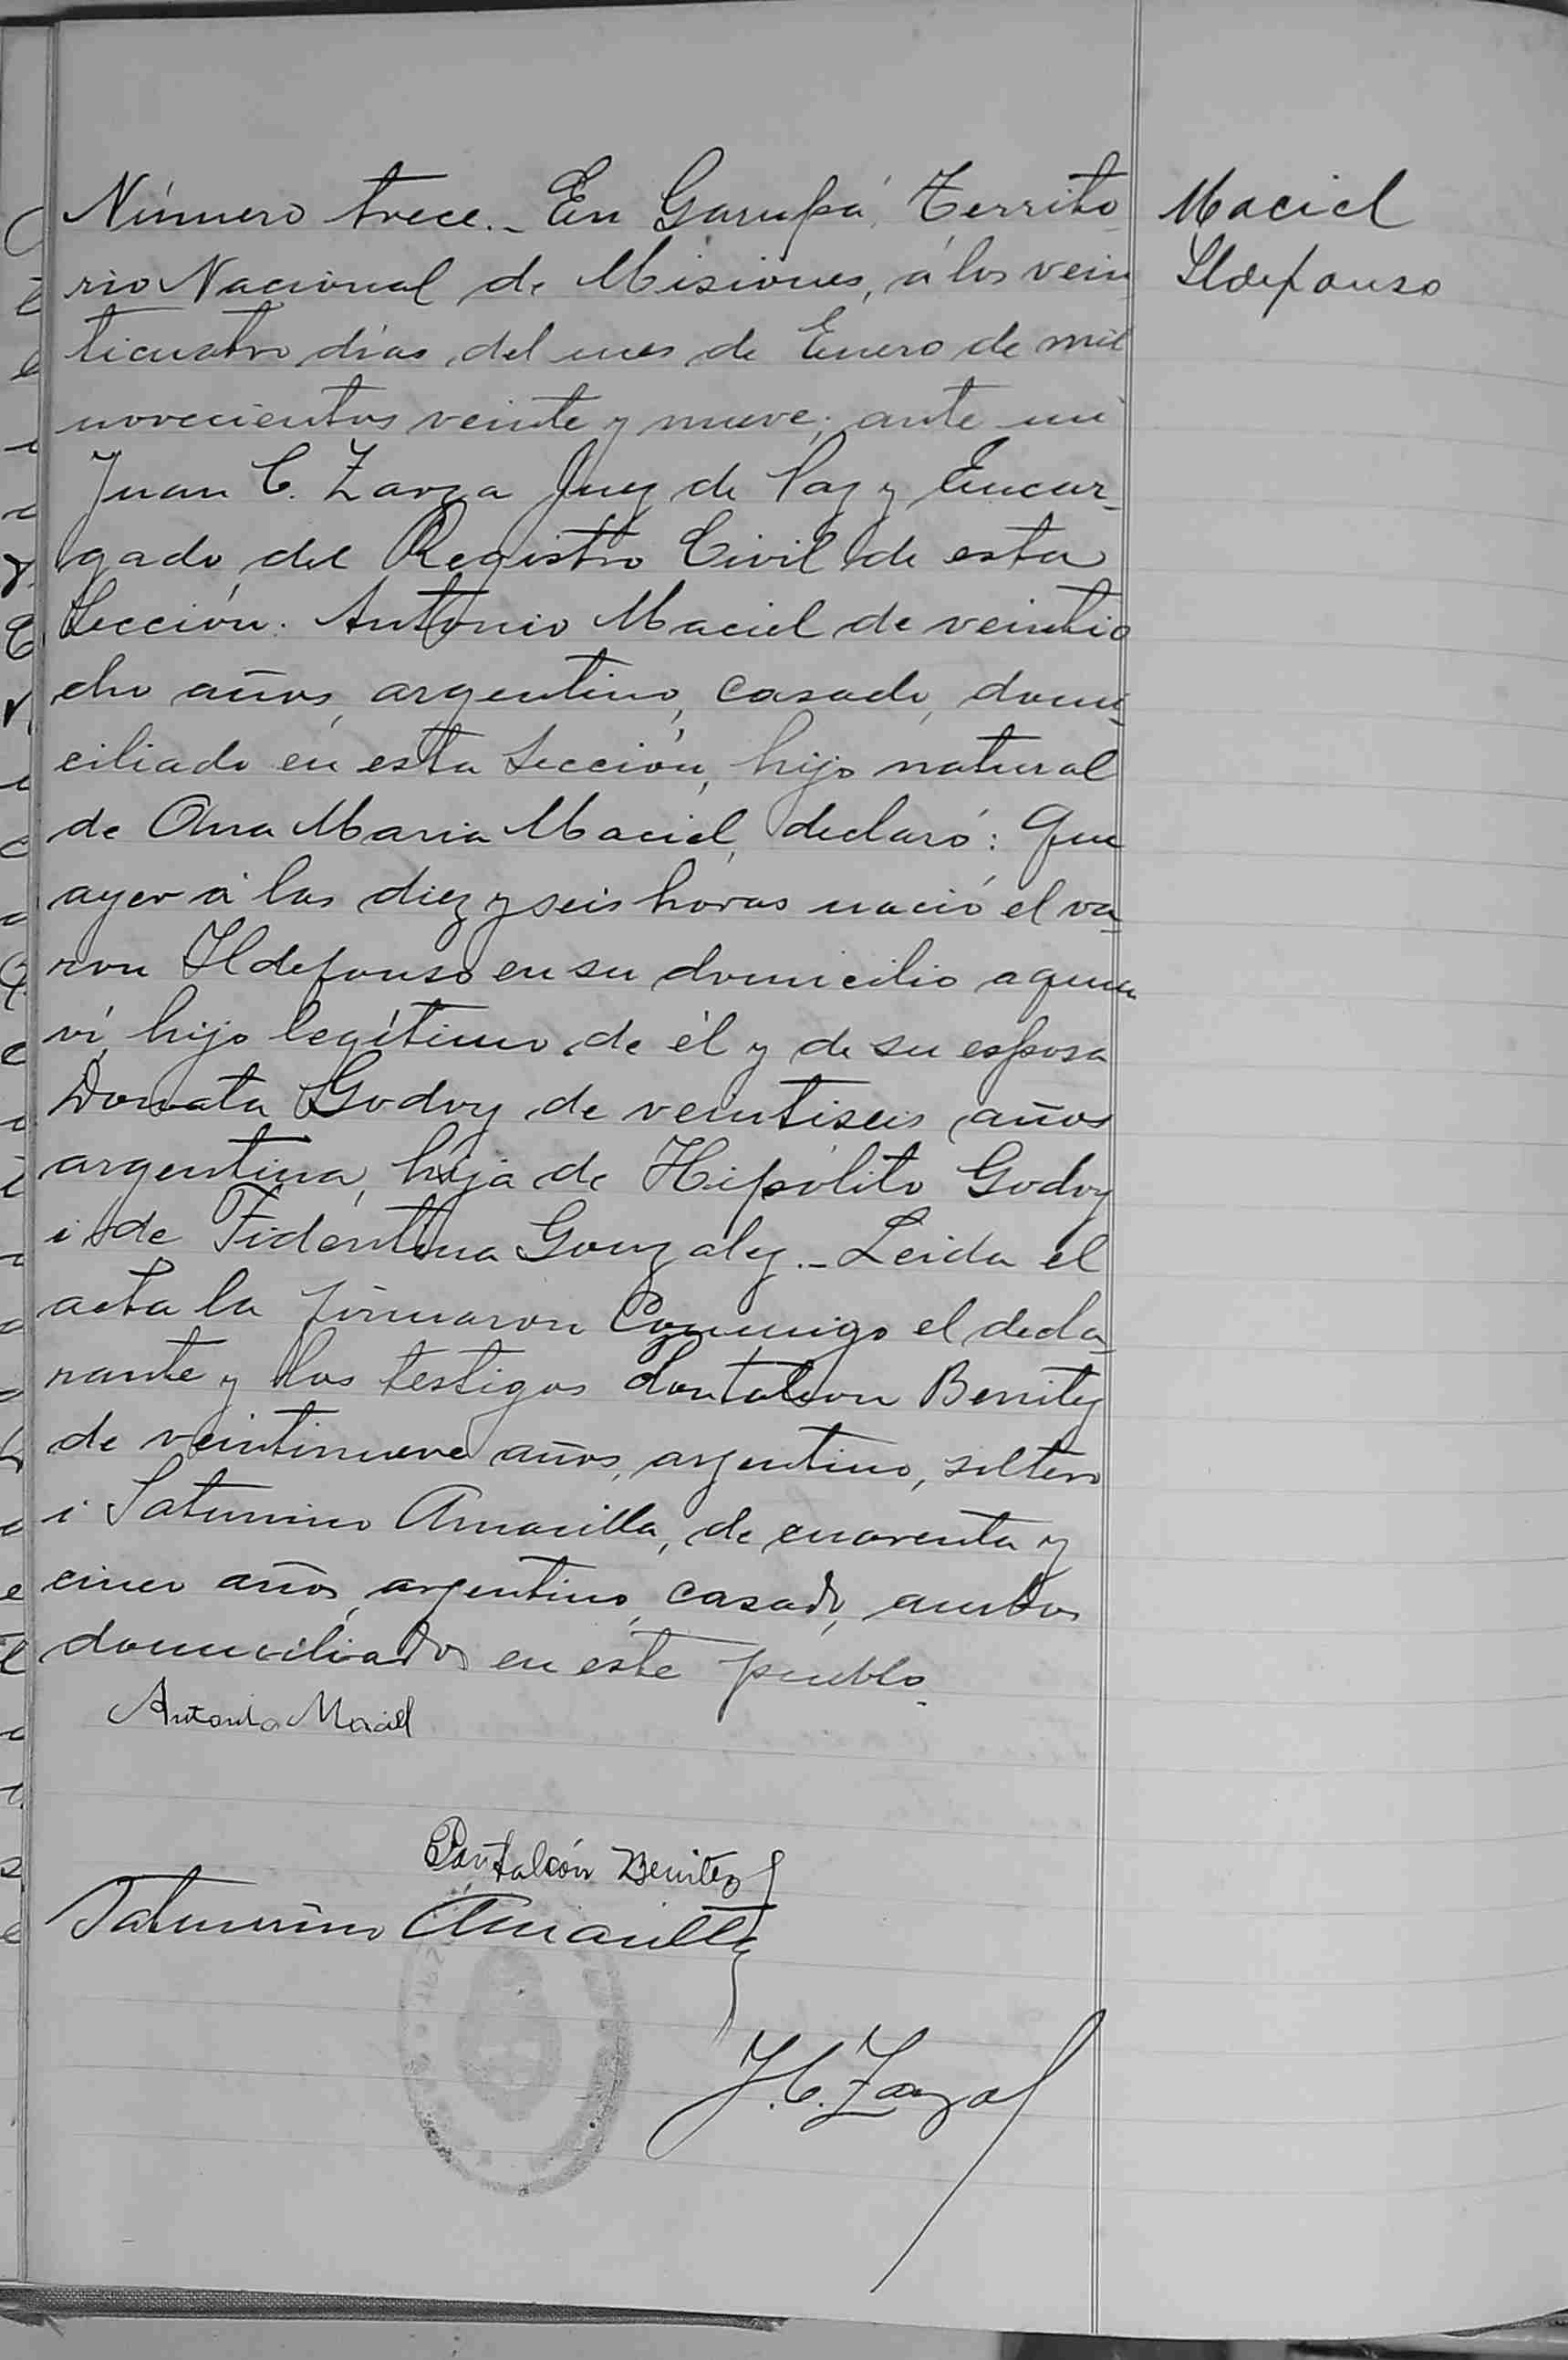 Número trece.- En Garupá, Territo-
rio Nacional de Misiones, á los vein
ticuatro días del mes de Enero de mil
novecientos veinte y nueve; ante mi
Juan C. Zarza Juez de Paz y Encar-
gado del Registro Civil de esta
Sección. Antonio Maciel de veintio
cho años, argentino, casado, domi-
ciliado en esta Sección, hijo natural
de Ana Maria Maciel, declaró: Que
ayer á las diez y seis horas nació el va-
ron Ildefonso en su domicilio a quien
ví, hijo legítimo de él y de su esposa
Donata Godoy de veintiseis años
argentina, hija de Hipólito Godoy
i de Fidentina Gonzalez.- Leida el
acta la firmaron conmigo el decla-
rante y los testigos Pantaleon Benitez
de veintinueve años, argentino, soltero
i Saturnino Amarilla, de cuarenta y
cinco años, argentino, casado, ambos
domiciliados en este pueblo.
Antonio Maciel
Pantaleón Benitez
Saturnino Amarilla
J. C. Zarza
Maciel
Ildefonso